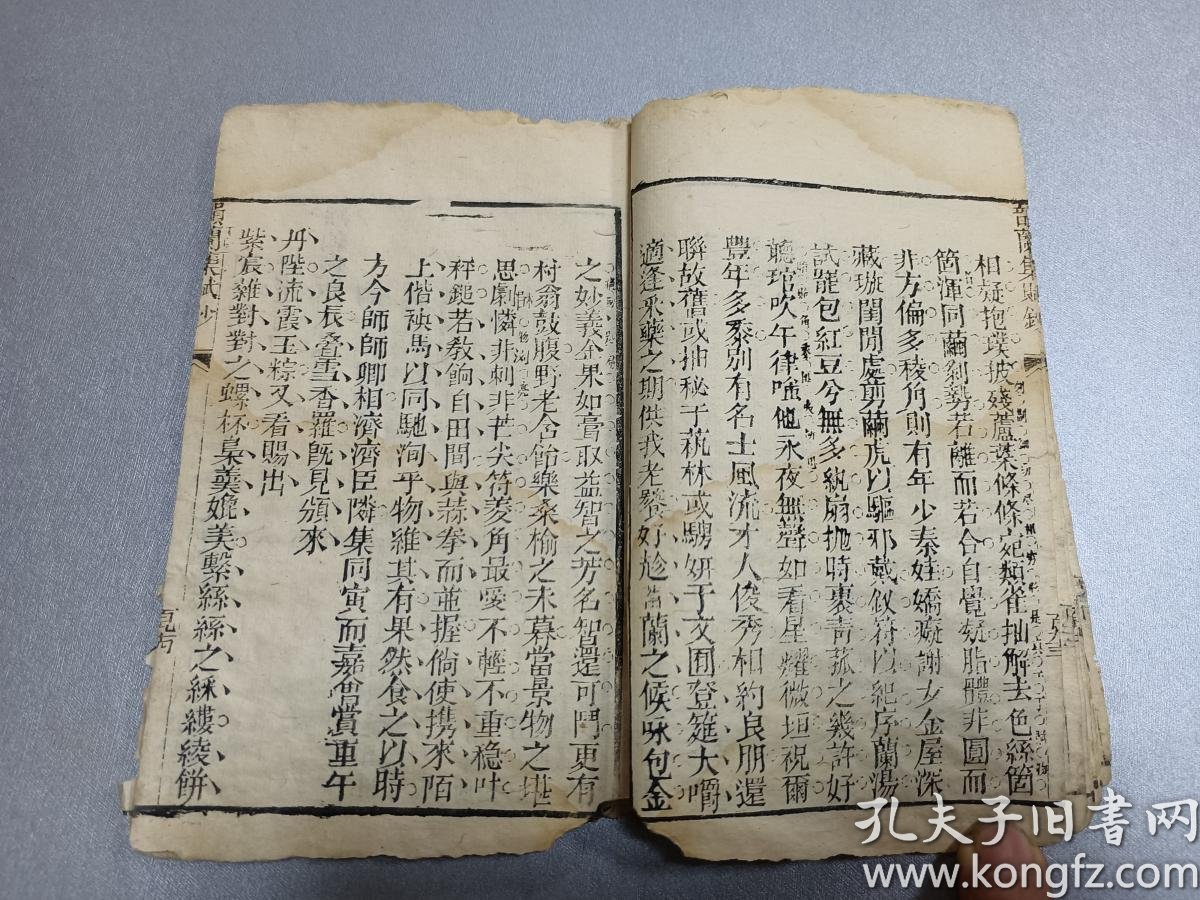 相疑抱璞披殘蘆葉條條宛類雀拙解去色絲箇
箇渾同繭剝勢若離而若合自覺疑脂體非圓而
非方偏多稜角則有年少秦娃嬌癡謝女金屋深
藏璇閨閒處剪繭虎以驅邪戴釵符以紀序蘭湯
試罷包紅豆兮無多紈扇拋時裹青菰之幾許好
聽琯吹午律嗤他永夜無聲如看星耀微垣祝爾
豐年多黍別有名士風流才人俊秀相約良朋還
聯故舊或抽秘于蓺林或騁妍于文囿登筵大嚼
適逢采藥之期供我老饕好趁蘭之候味包金
之妙義金果如膏取益智之芳名智還可鬥更有
村翁鼓腹野老含飴樂桑榆之未暮當景物之堪
思劇憐非刺非芒尖符菱角最愛不輕不重穩叶
秤鎚若教餉自田間與蒜拳而並握倘使携來陌
上偕秧馬以同馳洵乎物維其有果然食之以時
方今師師卿相濟濟臣隣集同寅而嘉會賞重午
之良辰疊雪香羅既見頒來
丹陛流霞玉粽又看賜出
紫宸雜對對之螺杯臬羹媲美繫絲絲之綵縷綾餅
蘭集賦鈔
蘭集賦鈔